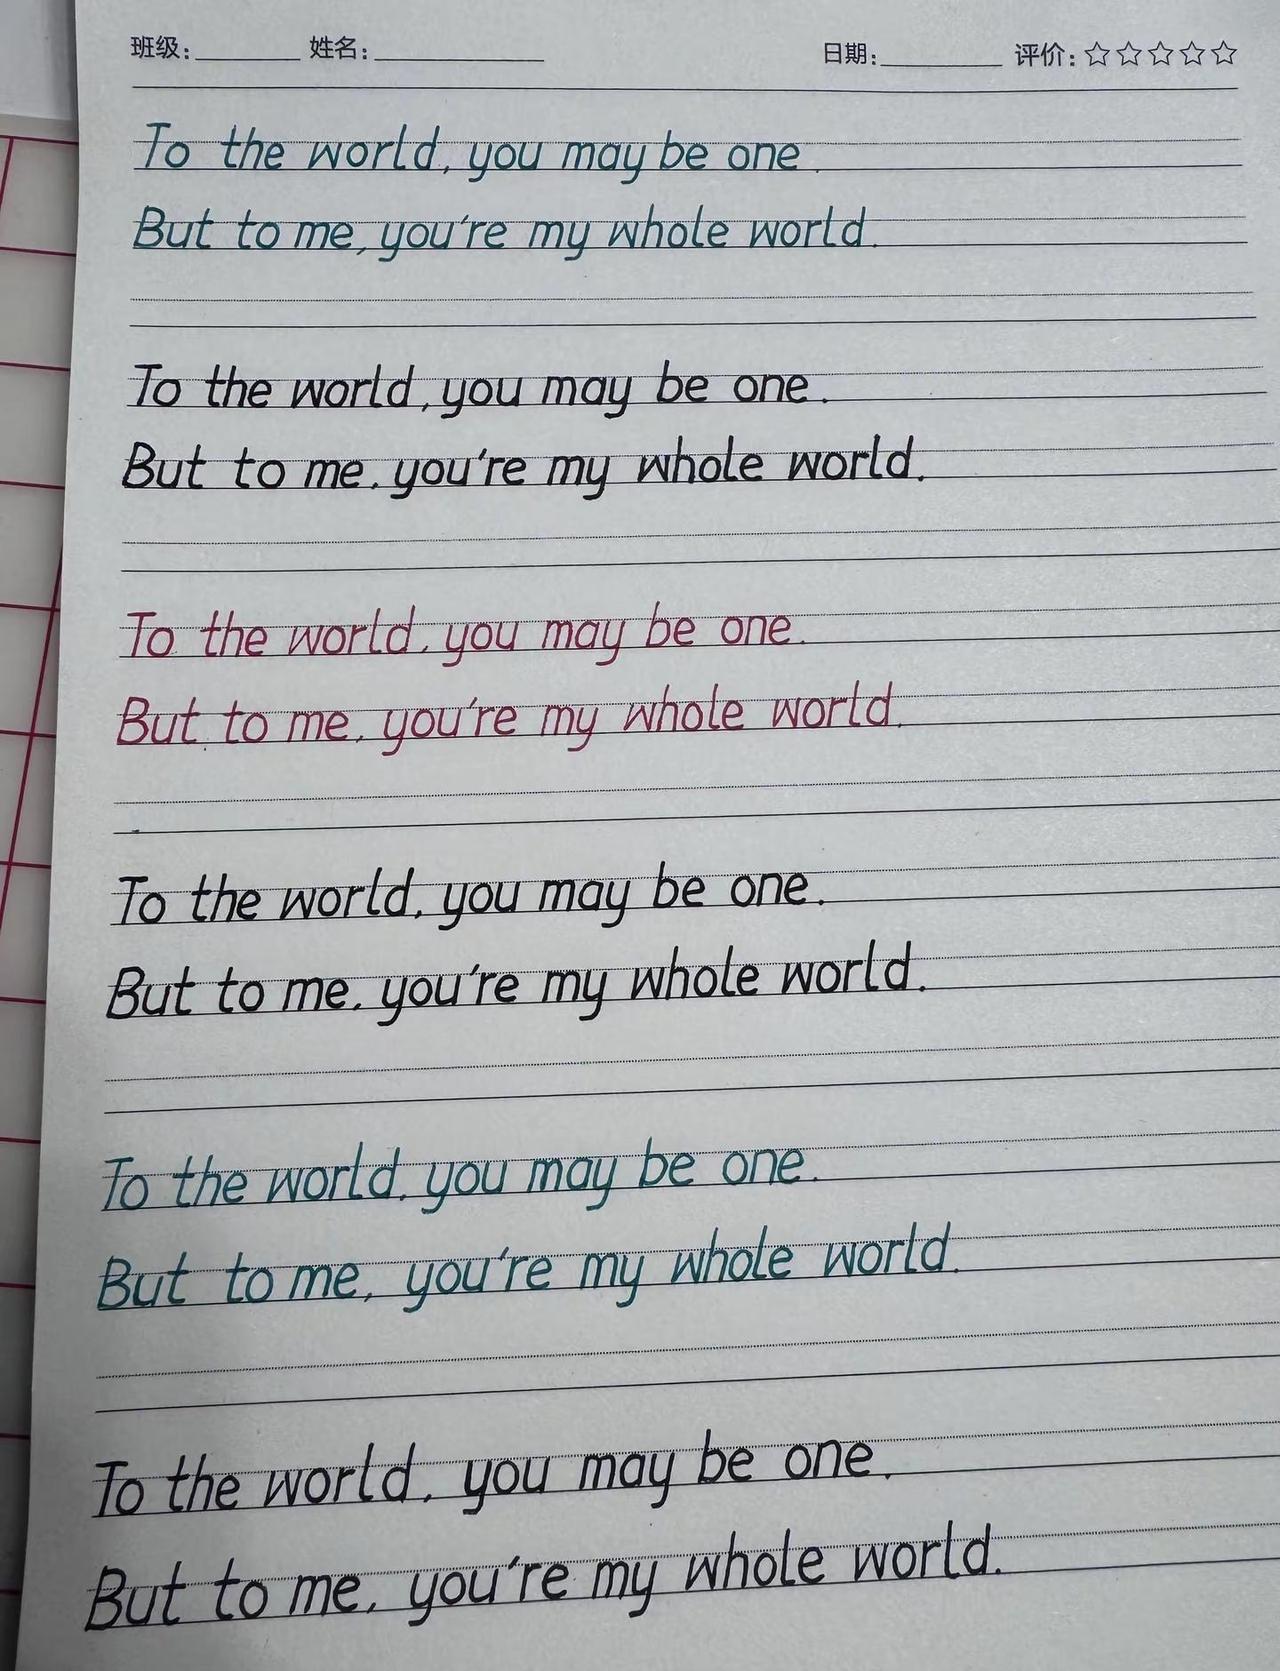 班级: 姓名: 日期: 评价:☆☆☆☆☆
To the world, you may be one.
But to me, you're my whole world.
To the world, you may be one.
But to me, you're my whole world.
To the world, you may be one.
But to me, you're my whole world.
To the world, you may be one.
But to me, you're my whole world.
To the world, you may be one.
But to me, you're my whole world.
To the world, you may be one.
But to me, you're my whole world.